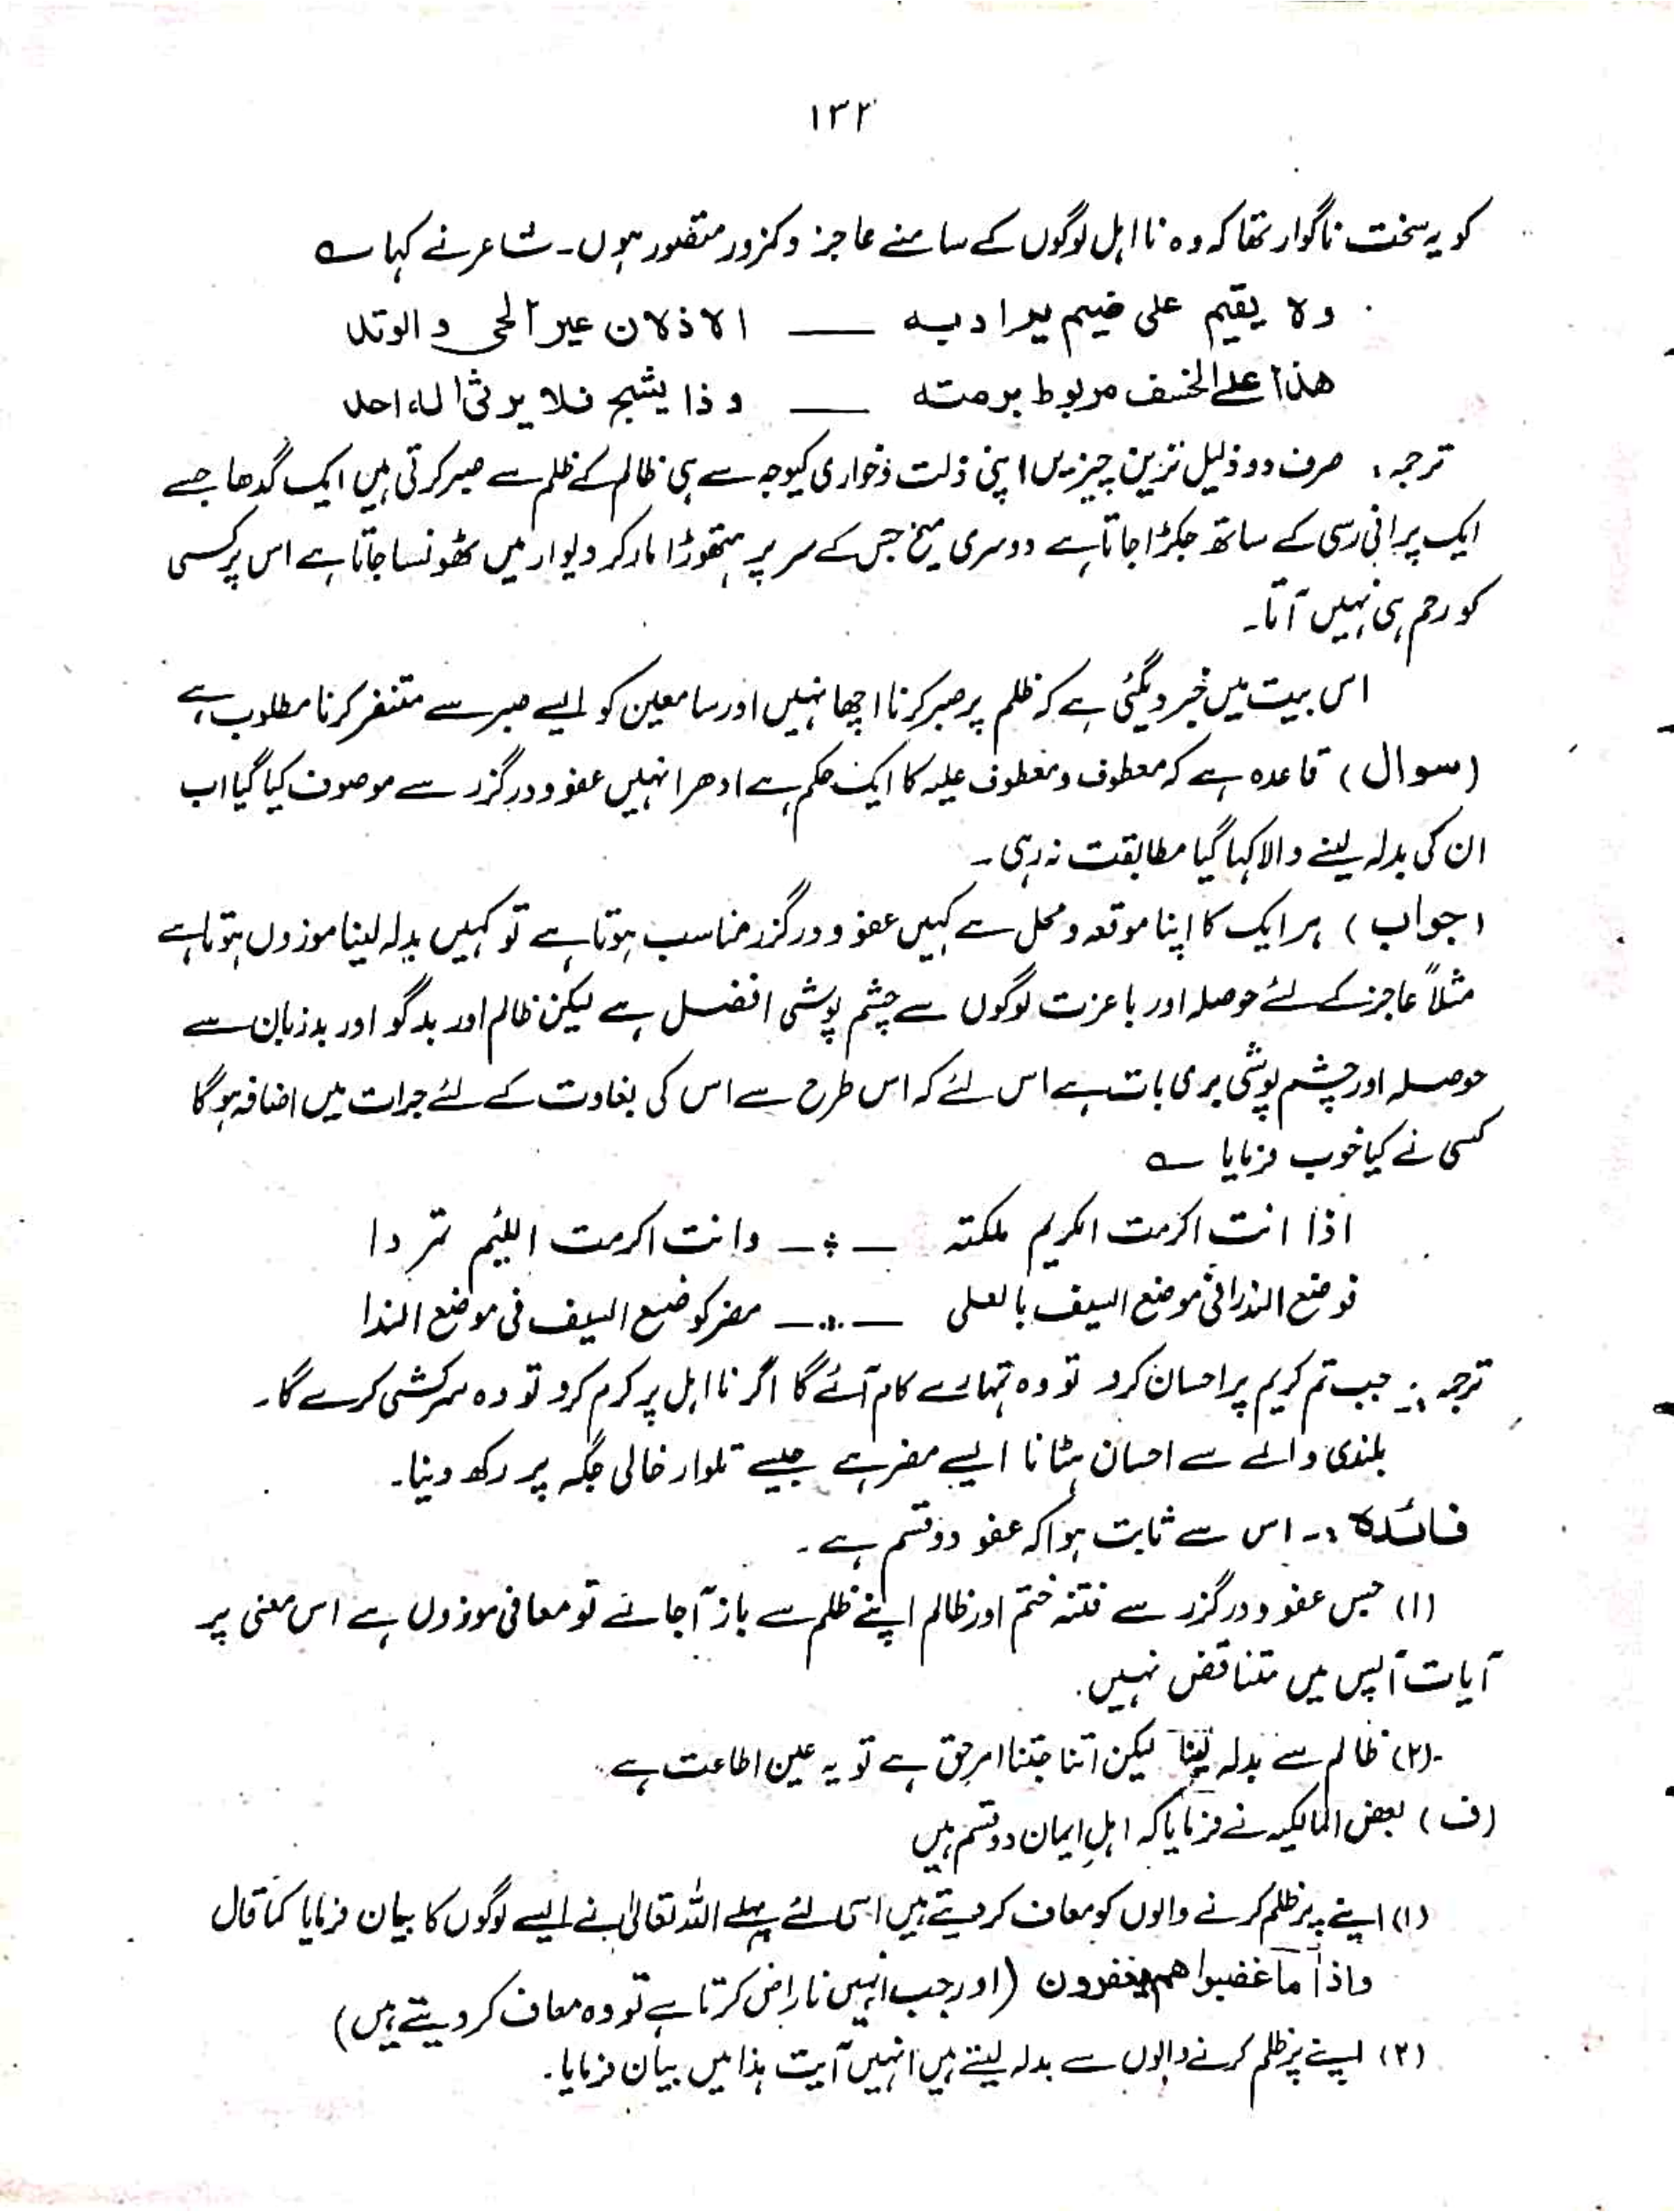 ۱۳۲
کو یہ سخت ناگوار تھا کہ وہ نااہل لوگوں کے سامنے عاجز و کمزور متصور ہوں۔ شاعر نے کہا ؎
ولا یقیم علی ضیم یراد بہ —— الا ذلان عیر الحی والوتد
ھذا علی الخسف مربوط برمتہ —— وذا یشج فلا یرثی لہ احد
ترجمہ، صرف دو ذلیل ترین چیزیں اپنی ذلت وخواری کیوجہ سے ہی ظالم کے ظلم سے صبر کرتی ہیں ایک گدھا جسے
ایک پرانی رسی کے ساتھ جکڑا جاتا ہے دوسری میخ جس کے سر پر ہتھوڑا مار کر دیوار میں ٹھونسا جاتا ہے اس پر کسی
کو رحم ہی نہیں آتا۔
اس بیت میں خبر دیگئی ہے کہ ظلم پر صبر کرنا اچھا نہیں اور سامعین کو ایسے صبر سے متنفر کرنا مطلوب ہے
(سوال) قاعدہ ہے کہ معطوف و معطوف علیہ کا ایک حکم ہے ادھر انہیں عفو و درگزر سے موصوف کیا گیا اب
ان کی بدلہ لینے والا کہا گیا مطابقت نہ رہی۔
(جواب) ہر ایک کا اپنا موقعہ و محل ہے کہیں عفو و درگزر مناسب ہوتا ہے تو کہیں بدلہ لینا موزوں ہوتا ہے
مثلاً عاجز کے لئے حوصلہ اور باعزت لوگوں سے چشم پوشی افضل ہے لیکن ظالم اور بدگو اور بدزبان سے
حوصلہ اور چشم پوشی بری بات ہے اس لئے کہ اس طرح سے اس کی بغاوت کے لئے جرات میں اضافہ ہوگا
کسی نے کیا خوب فرمایا ؎
اذا انت اکرمت الکریم ملکتہ —⁘— وانت اکرمت اللئیم تمردا
فوضع الندا فی موضع السیف بالعلی —⁘— مضر کوضع السیف فی موضع الندا
ترجمہ :۔ جب تم کریم پر احسان کرو تو وہ تمہارے کام آئے گا اگر نااہل پر کرم کرو تو وہ سرکشی کرے گا۔
بلندی والے سے احسان ہٹانا ایسے مضر ہے جیسے تلوار خالی جگہ پر رکھ دینا۔
فائدہ :۔ اس سے ثابت ہوا کہ عفو دو قسم ہے۔
(۱) جس عفو و درگزر سے فتنہ ختم اور ظالم اپنے ظلم سے باز آجائے تو معافی موزوں ہے اس معنی پر
آیات آپس میں متناقض نہیں۔
(۲) ظالم سے بدلہ لینا لیکن اتنا جتنا امر حق ہے تو یہ عین اطاعت ہے۔
(ف) بعض المالکیہ نے فرمایا کہ اہل ایمان دو قسم ہیں
(۱) اپنے پر ظلم کرنے والوں کو معاف کردیتے ہیں اسی لئے پہلے اللہ تعالیٰ نے ایسے لوگوں کا بیان فرمایا کما قال
واذا ما غضبوا ھم یغفرون (اور جب انہیں ناراض کرتا ہے تو وہ معاف کر دیتے ہیں)
(۲) اپنے پر ظلم کرنے والوں سے بدلہ لیتے ہیں انہیں آیت ہذا میں بیان فرمایا۔